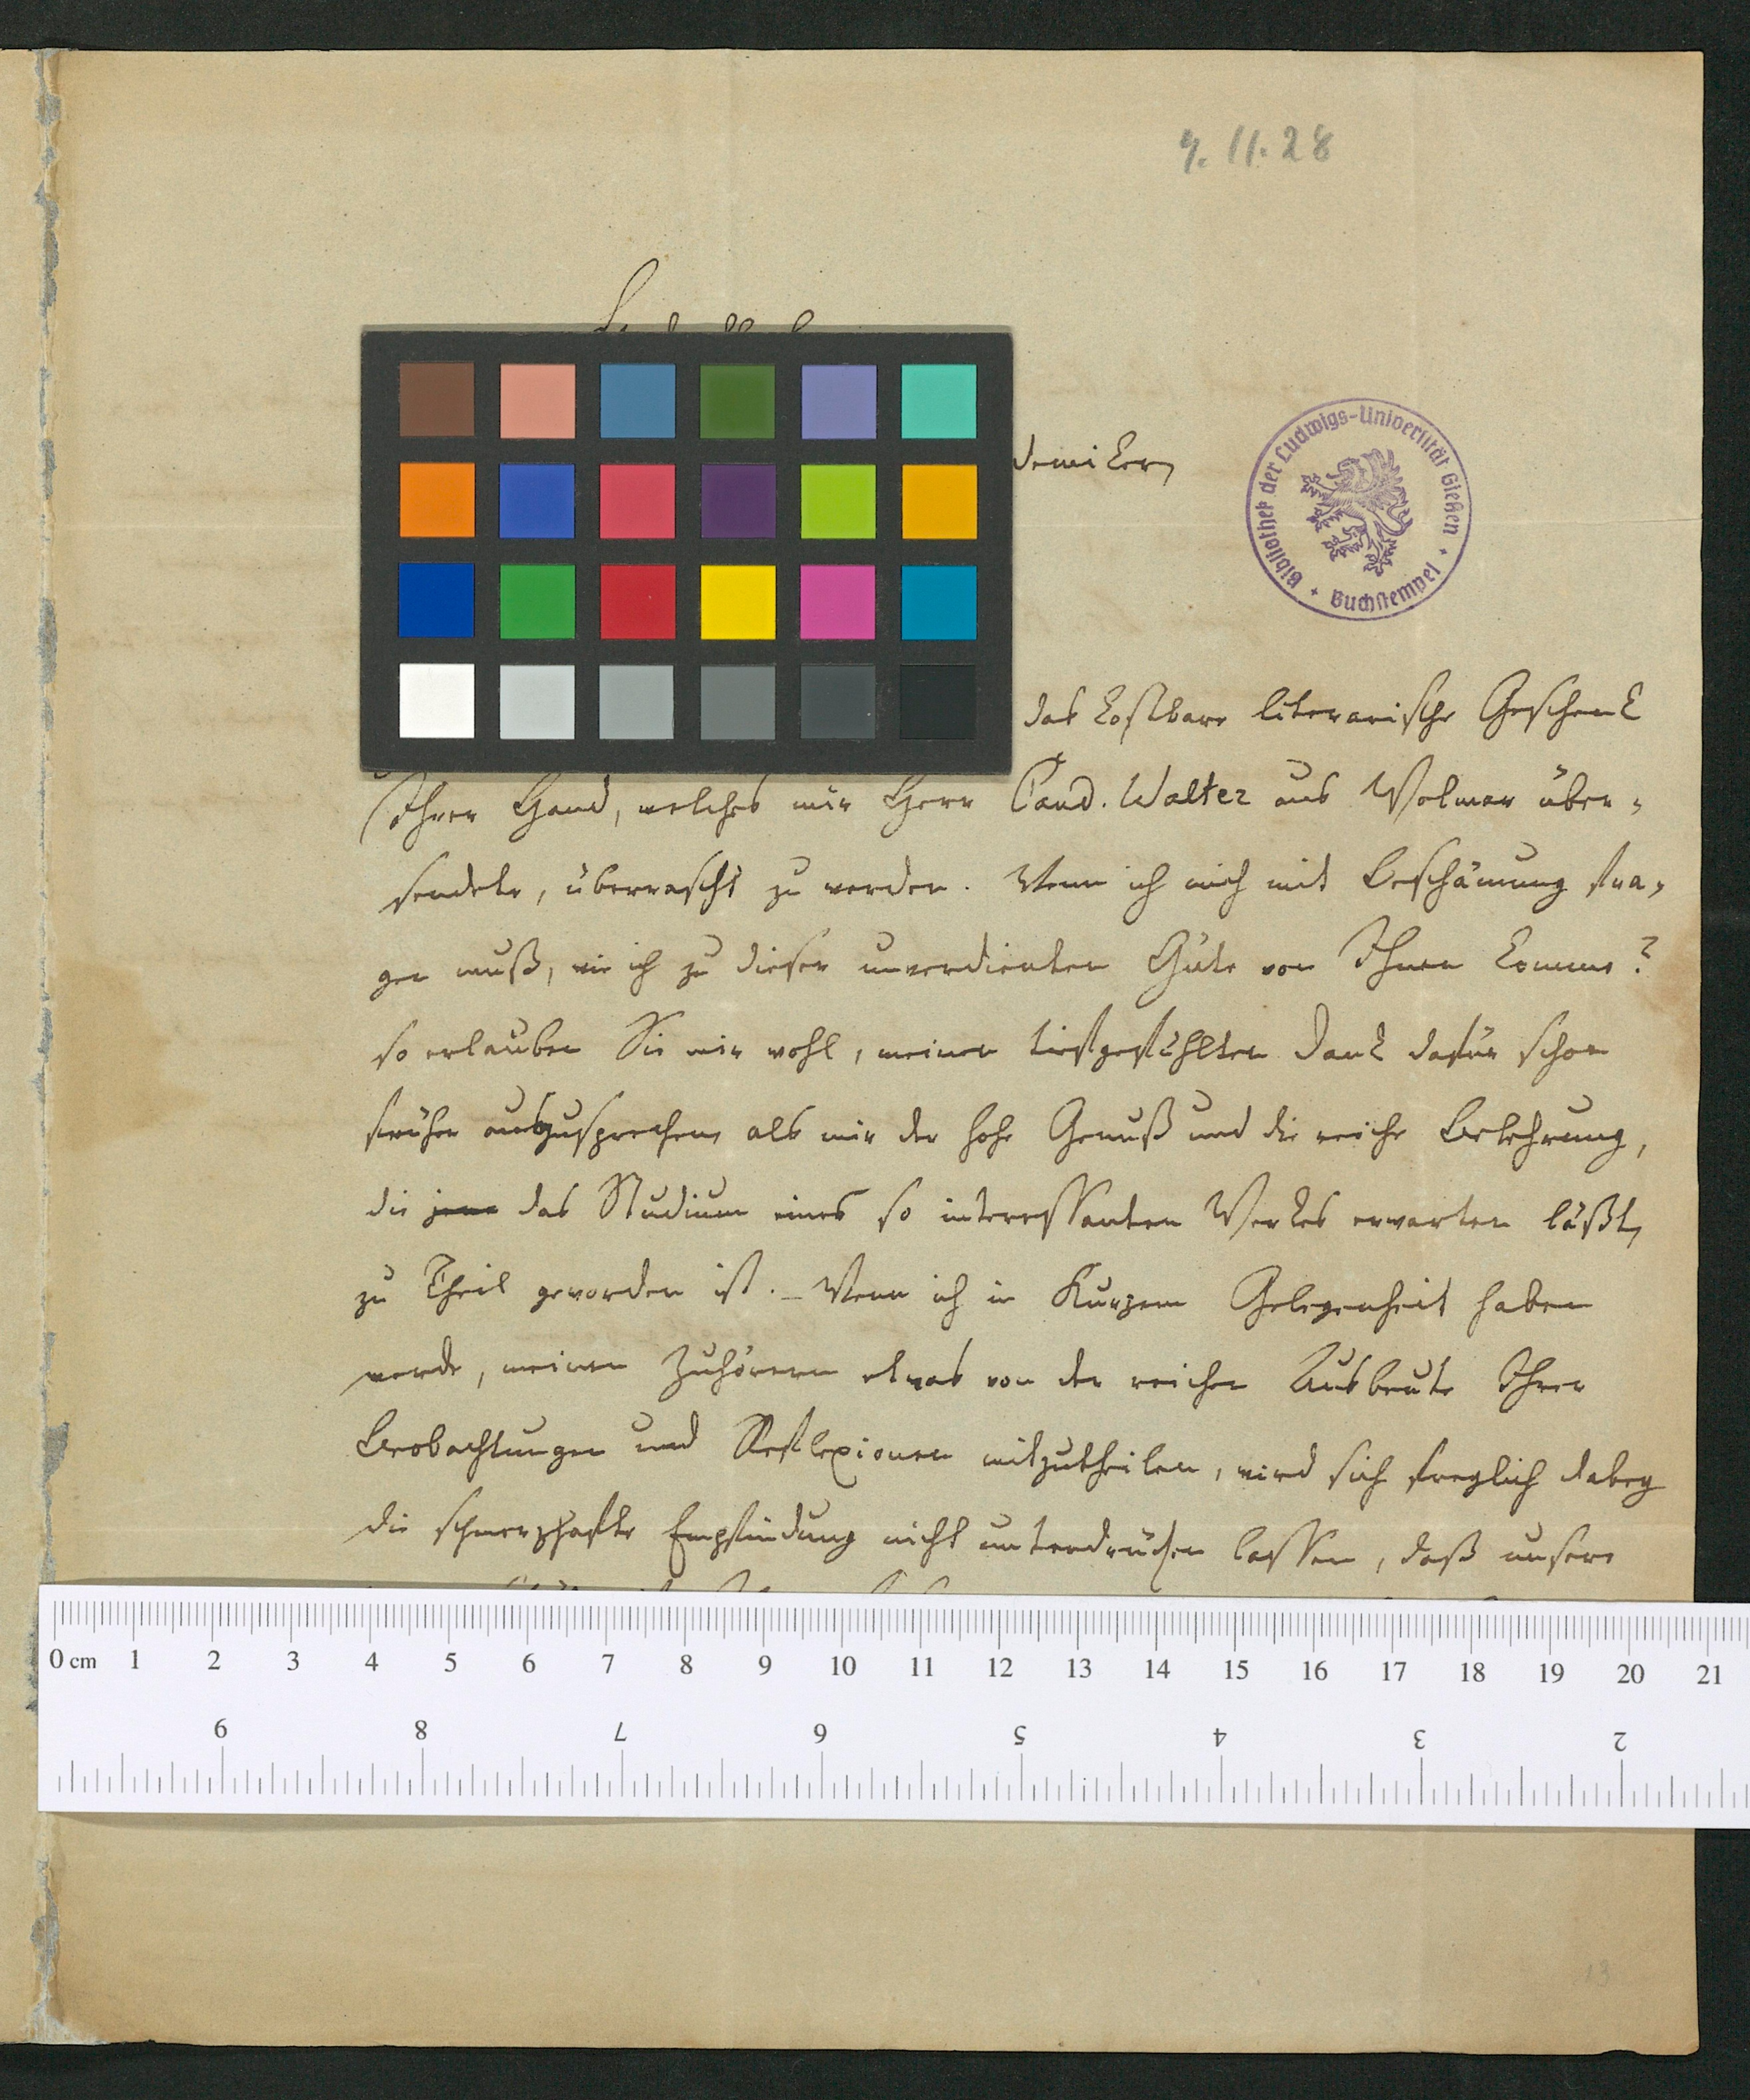 4. 11. 28
demiker,
Bibliothek der Ludwigs-Universität Gießen
Buchstempel
das kostbare literarische Geschenk
Ihrer Hand, welches mir Herr Cand. Walter aus Wolmar über-
sendete, überrascht zu werden. Wenn ich mich mit Beschämung fra-
gen muß, wie ich zu dieser unverdienten Güte von Ihnen komme?
so erlauben Sie mir wohl, meinen tiefgefühlten Dank dafür schon
früher auszusprechen, als mir der hohe Genuß und die reiche Belehrung,
die jene das Studium eines so interessanten Werkes erwarten läßt,
zu Theil geworden ist. – Wenn ich in Kurzem Gelegenheit haben
werde, meinen Zuhörern etwas von der reichen Ausbeute Ihrer
Beobachtungen und Reflexionen mitzutheilen, wird sich freylich dabey
die schmerzhafte Empfindung nicht unterdrücken lassen, daß unsere
0 cm 1 2 3 4 5 6 7 8 9 10 11 12 13 14 15 16 17 18 19 20 21
9 8 7 6 5 4 3 2
13